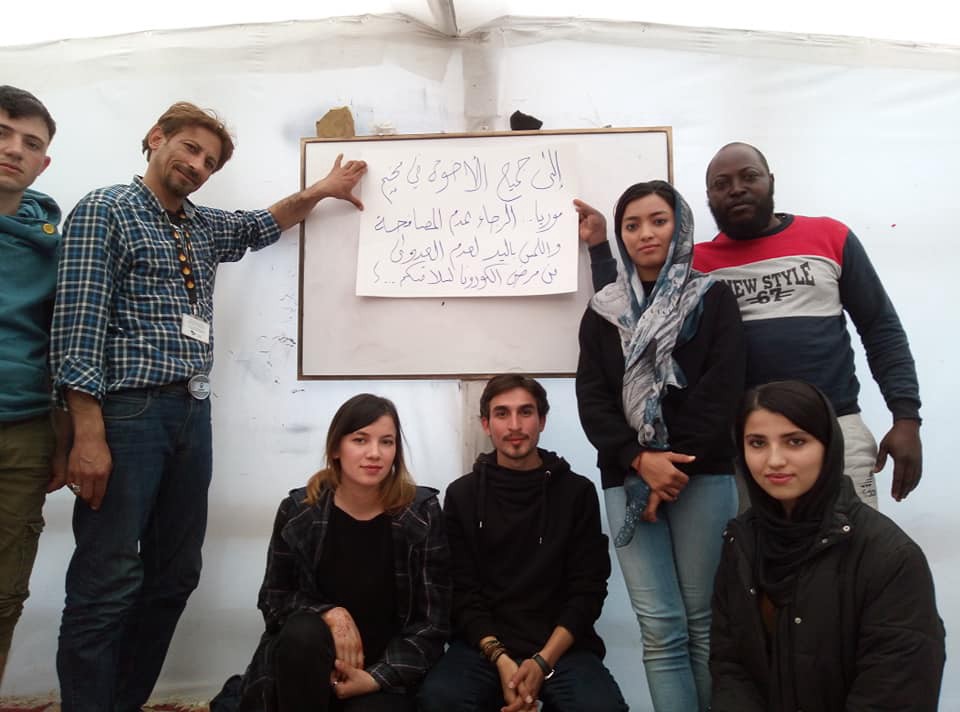 إلى جميع الأخوة في مخيم
موريا. الرجاء عدم المصافحة
واللمس باليد لعدم العدوى
من مرض الكورونا لسلامتكم...؟
NEW STYLE
67